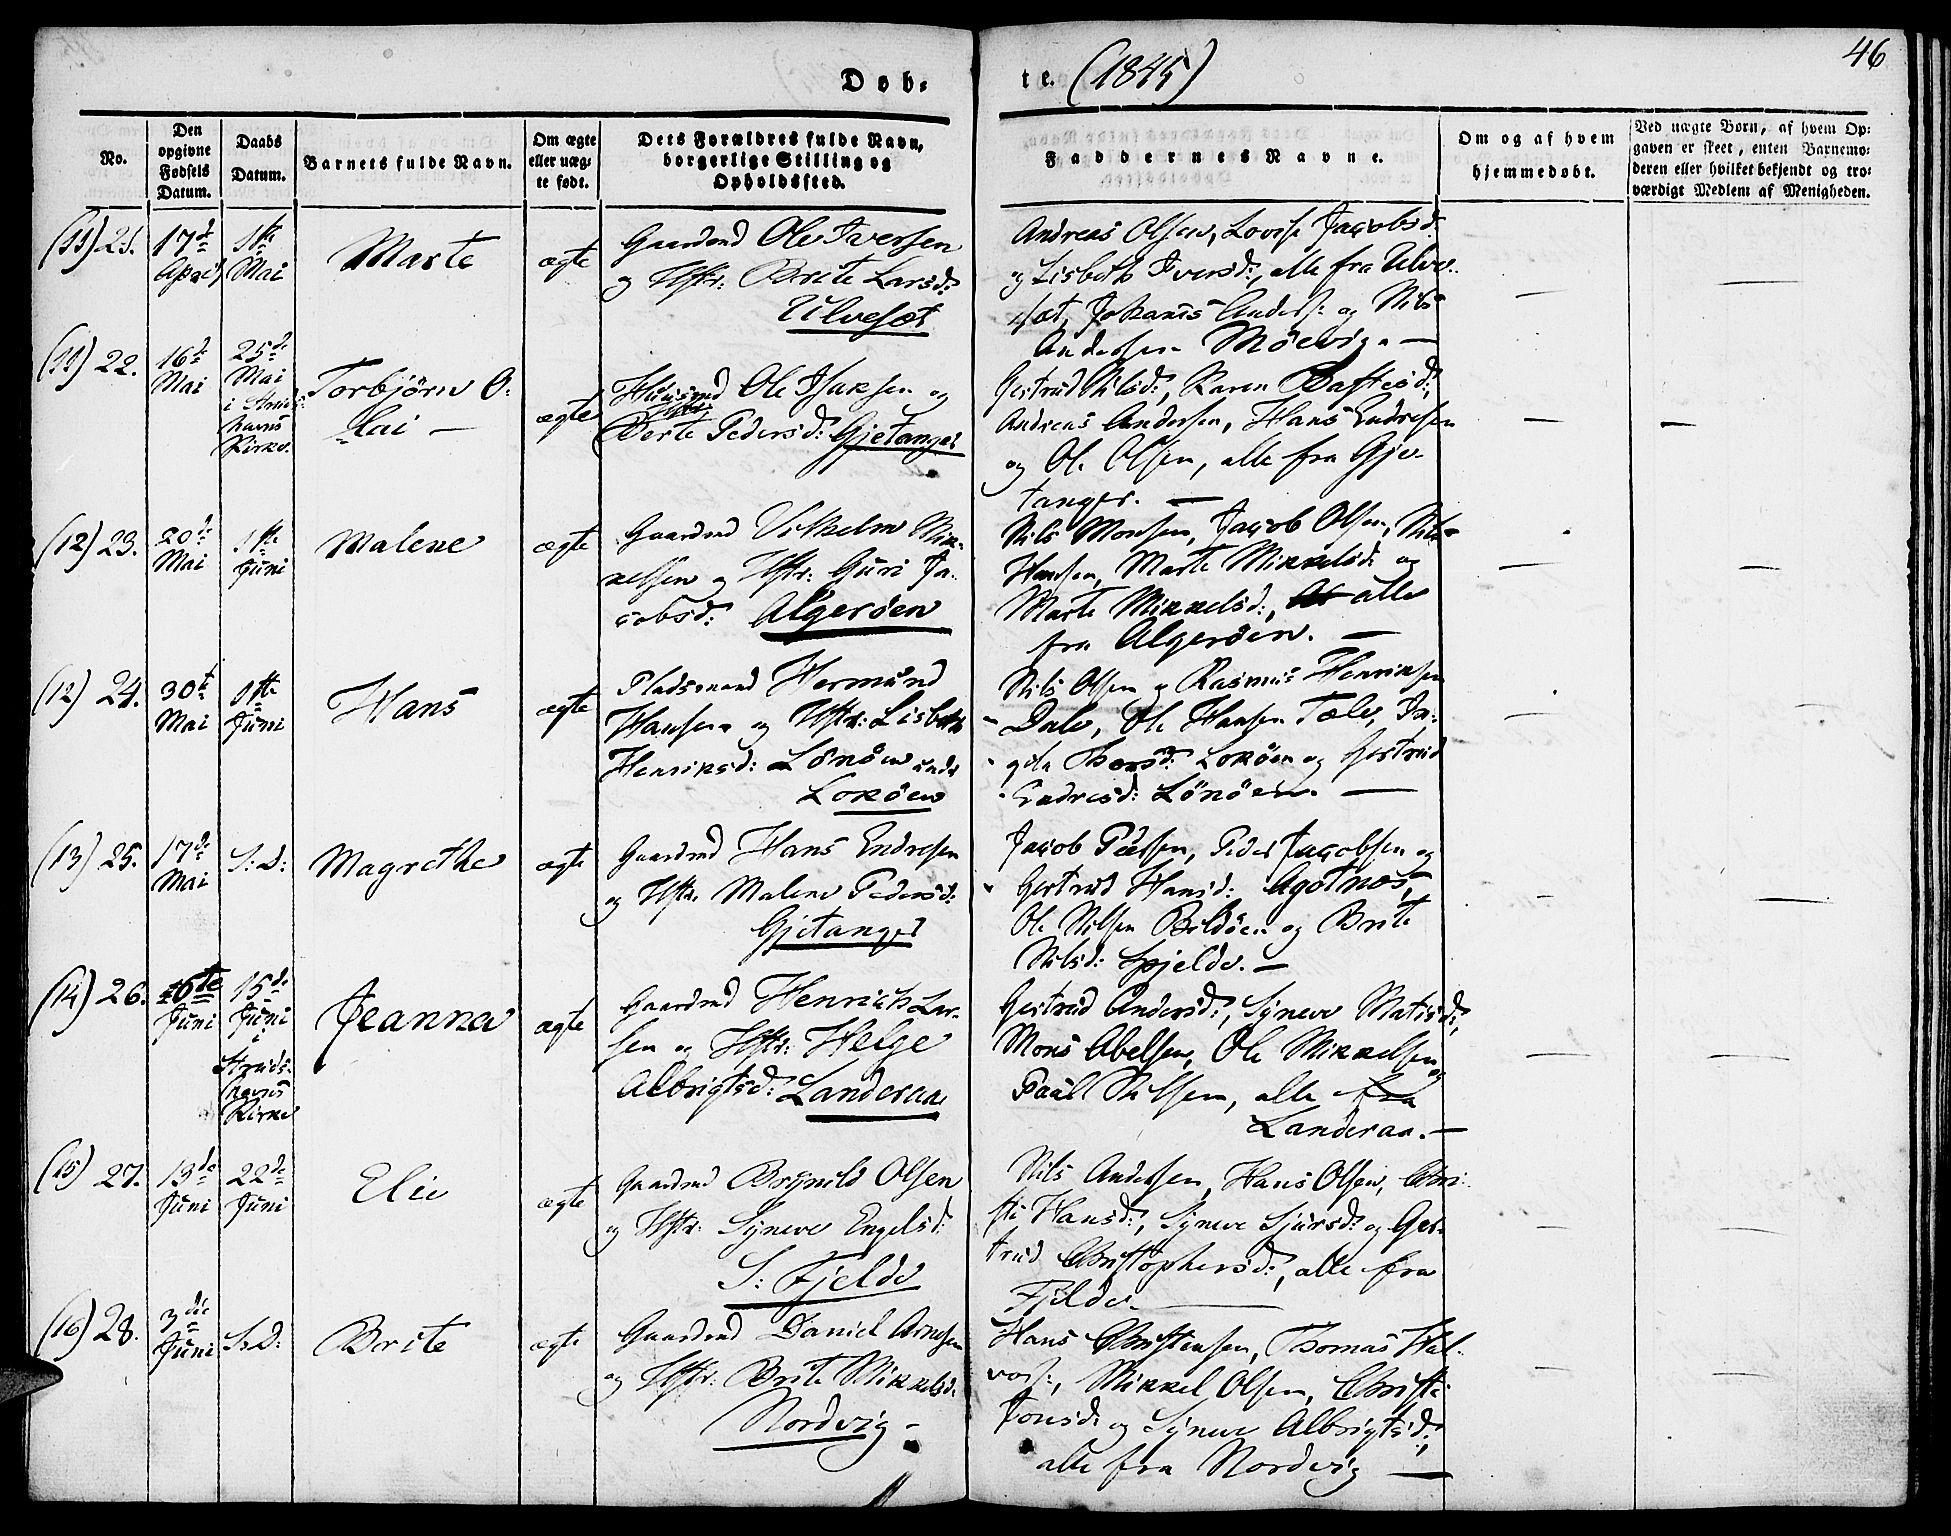 46
Døb-
te. (1845)
No.
Den opgivne Fødsels Datum.
Daabs Datum.
Barnets fulde Navn.
Om ægte eller uæg-te født.
Dets Forældres fulde Navn, borgerlige Stilling og Opholdssted.
Faddernes Navne.
Om og af hvem hjemmedøbt.
Ved uægte Børn, af hvem Op-gaven er skeet, enten Barnemo-deren eller hvilket bekjendt og tro-værdigt Medlem af Menigheden.
(11) 21.
17de April
1ste Mai
Marte
ægte
Gaardmd Ole Iversen
og Hstr: Brite Larsd:
Ulveset
Andreas Olsen, Lovise Jacobsd:
og Lisbeth Iversd:, alle fra Ulve-
set, Johanes Anders: og Nils
Andersen Möevig. —
(11) 22.
16de Mai
25de Mai
i
havns
Kirke.
Torbjörn O-
lai —
ægte
Huusmd Ole Isaksen og
Hstr:
Berte Pedersd: Gjetanger
Gertrud Nilsd:, Karen
Andreas Andersen, Hans Endresen
og Ole Olsen, alle fra Gje-
tanger. —
(12) 23.
20de Mai
1ste Juni
Malene
ægte
Gaardmd Vilhelm Mik-
kelsen og Hstr: Guri Ja-
cobsd: Algeröen
Nils Monsen, Jacob Olsen, Nils
Hansen, Marte Mikkelsd: og
Marte Mikkelsd:, alle
fra Algeröen. —
(12) 24.
30te Mai
1ste Juni
Hans
ægte
Pladsmand Hermund
Hansen og Hstr: Lisbeth
Henriksd: Lönöen
Loköen
Nils Olsen og Rasmus Henriksen
Dale, Ole Hansen Tæle, In-
Loköen og Gertrud
Endresd: Lönöen. —
(13) 25.
17de Mai
S: D:
Magrethe
ægte
Gaardmd Hans Endresen
og Hstr. Malene Pedersd:
Gjetanger
Jacob Peersen, Peder Jacobsen og
Gertrud Hansd: Agotnes,
Ole Nilsen Bildöen og Brite
Nilsd: Spjelde. —
(14) 26.
6te Juni
15de Juni
i
havns
Kirke
Jeanna
ægte
Gaardmd Henrich Lar-
sen og Hstr: Helge
Albrigtsd: Landeraa
Gertrud Andersd:, Syneve Matisd:,
Mons Abelsen, Ole Mikkelsen og
Paul Nilsen, alle fra
Landeraa. —
(15) 27.
13de Juni
22de Juni
Elie
ægte
Gaardmd Brynild Olsen
og Hstr: Syneve Engelsd:
S: Fjelde
Nils Andersen, Hans Olsen, Chri-
sti Hansd:, Syneve Sjursd: og Ger-
trud Christophersd:, alle fra
Fjelde. —
(16) 28.
3die Juni
S: D:
Brite
ægte
Gaardmd Daniel Arnesen
og Hstr: Brite Mikkelsd:
Nordvig —
Hans Christensen, Thomas Hal-
vors:, Mikkel Olsen, Christi
Jonsd: og Syneve Albrigtsd:,
alle fra Nordvig —